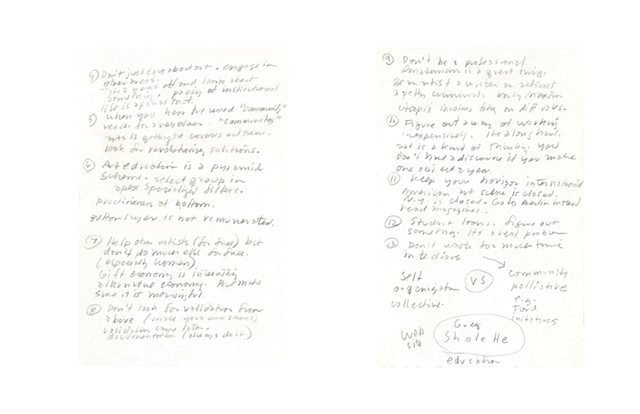 4) Don't just care about art. engage in
other areas.
Take a year off and learn about
something.
life is against that.
5) when you hear the word "community"
reach for a revolver. "community"
arts is getting to
look for revolutionary solutions.
6 Art education is a pyramid
scheme. select group in
apex
practitioners at bottom.
bottom layer is not remunerated.
7 Help other artists (for free) but
don't do much else for free.
(especially women)
Gift economy is interesting
alternative economy. But make
sure it is meaningful.
8 Don't look for validation from
above (make your own shows)
validation later.
documentation (always do it)
9 Don't be a professional.
Amateurism is a great thing.
Be an artist a writer or
a petty criminal. only
utopia involves on diff roles.
10 Figure out a way of working
inexpensively. It's a long haul.
art is a kind of thinking. you
don't have a discourse if you make
one object a year.
11 Keep your horizon international
American art scene is closed.
N.Y. is closed. Go to Berlin instead
read magazines.
12 Student loans. figure out
something. Its a real problem
13 Don't waste too much time
in
self
organization
collective.
VS
community
e.g.
Food
initiatives
Web
site
Greg
Sholette
education